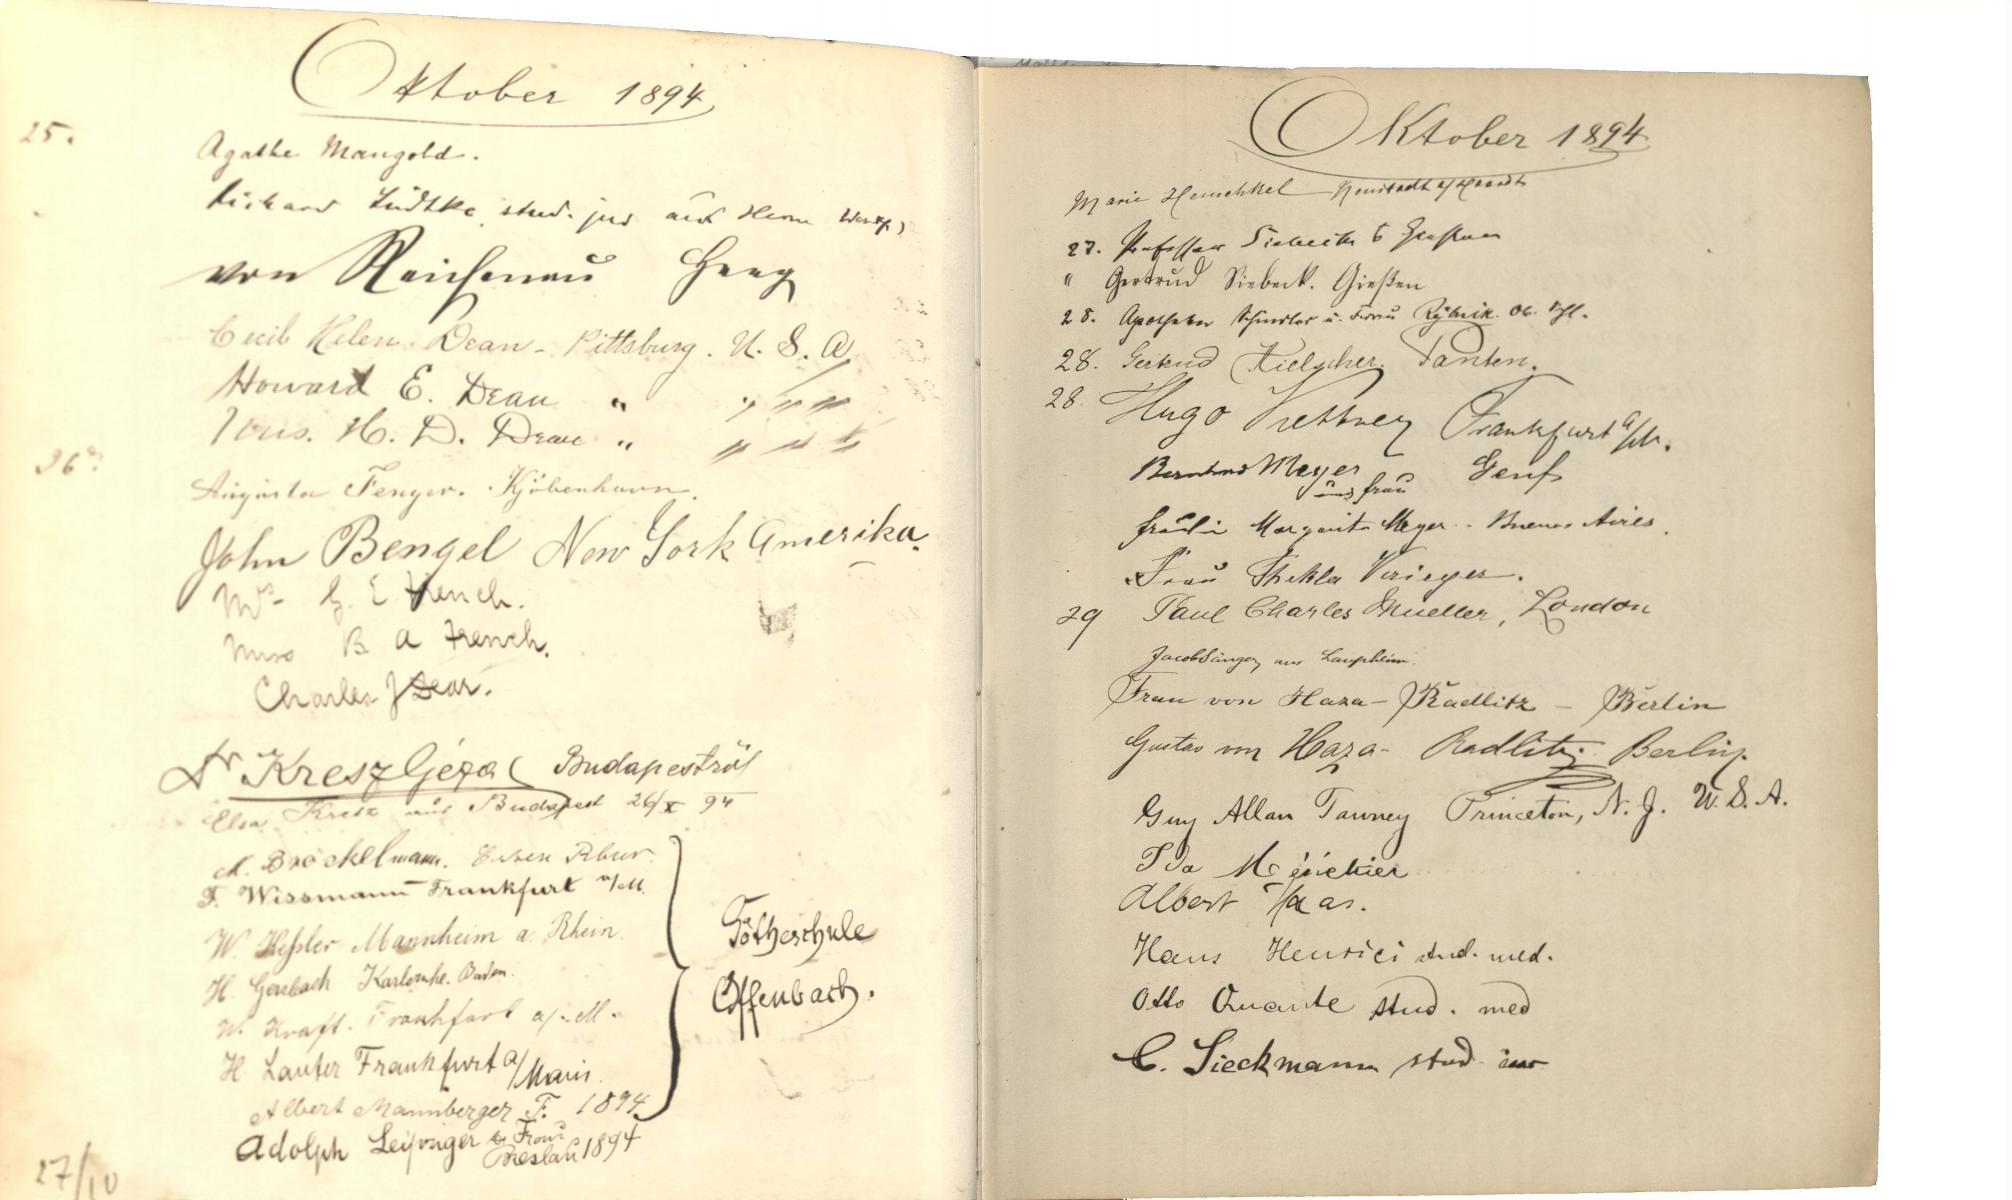 Oktober 1894
25.
Agathe Mangold.
Richard Lüdtke, stud. jur aus
von Reichenau Haag
Cecil Helen Dean - Pittsburg. U. S. A.
Howard E. Dean " " " "
Mrs. H. D. Dean " " " "
26
Augusta Fenger. Kjöbenhavn.
John Bengel New York Amerika.
Mrs G. E French.
Miss B A French.
Charles J Dear.
Dr Kresz Géza Budapestről
Elsa Kresz aus Budapest 26/X 94
M. Bröckelmann.
F. Wissmann Frankfurt a/M.
W. Keßler Mannheim a. Rhein.
H. Gersbach Karlsruhe. Baden.
W. Kraft. Frankfurt a/M.
H Lauter Frankfurt a/Main.
Albert Mannberger F. 1894
Götheschule
Offenbach.
Adolph Leipziger & Frau
Breslau 1894
27/10
Oktober 1894
Marie Henschkel Neustadt a/Haardt
27. Professor Siebeck Gießen
" Gertrud Siebeck. Gießen
28. Apotheker Schindler u. Frau Rybnik. Ob. Schl.
28. Gertrud Kielscher. Xanten.
28. Hugo Frankfurt a/M.
Bernhard Meyer Genf
und Frau
Fräulein Margarita Meyer - Buenos Aires.
Frau Thekla Krieger.
29 Paul Charles Mueller, London
Jacob Sänger, aus Laupheim.
Frau von Haza-Radlitz - Berlin
Gustav von Haza-Radlitz. Berlin.
Guy Allan Tawney Princeton, N. J. U. S. A.
Ida
Albert Haas.
Hans Henrici stud. med.
Otto Quante stud. med
C. Sieckmann stud. iur